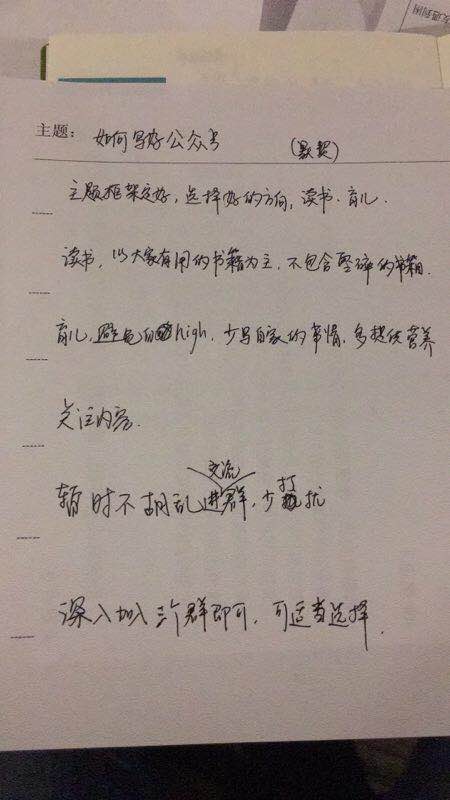 主题: 如何写好公众号 (默契)
主题框架定好, 选择好的方向, 读书、育儿.
读书, 以大家有用的书籍为主, 不包含零碎的书籍.
育儿, 避免自high, 少写自家的事情, 多提供营养
关注内容.
交流
暂时不胡乱进群, 少打扰
深入加入三个群即可, 可适当选择.